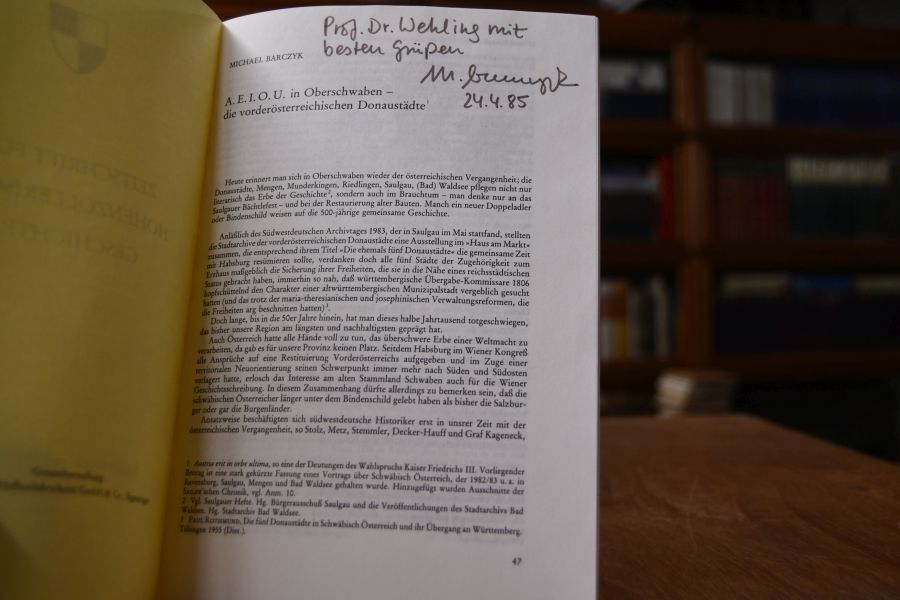 Prof. Dr. Wehling mit
besten Grüßen
24.4.85
MICHAEL BARCZYK
A. E. I. O. U. in Oberschwaben –
die vorderösterreichischen Donaustädte¹
Heute erinnert man sich in Oberschwaben wieder der österreichischen Vergangenheit; die
Donaustädte, Mengen, Munderkingen, Riedlingen, Saulgau, (Bad) Waldsee pflegen nicht nur
literarisch das Erbe der Geschichte², sondern auch im Brauchtum – man denke nur an das
Saulgauer Bächtlefest – und bei der Restaurierung alter Bauten. Manch ein neuer Doppeladler
oder Bindenschild weisen auf die 500-jährige gemeinsame Geschichte.
Anläßlich des Südwestdeutschen Archivtages 1983, der in Saulgau im Mai stattfand, stellten
die Stadtarchive der vorderösterreichischen Donaustädte eine Ausstellung im »Haus am Markt«
zusammen, die entsprechend ihrem Titel »Die ehemals fünf Donaustädte« die gemeinsame Zeit
mit Habsburg resümieren sollte, verdanken doch alle fünf Städte der Zugehörigkeit zum
Erzhaus maßgeblich die Sicherung ihrer Freiheiten, die sie in die Nähe eines reichsstädtischen
Status gebracht haben, immerhin so nah, daß württembergische Übergabe-Kommissare 1806
kopfschüttelnd den Charakter einer altwürttembergischen Munizipalstadt vergeblich gesucht
hatten (und das trotz der maria-theresianischen und josephinischen Verwaltungsreformen, die
die Freiheiten arg beschnitten hatten)³.
Doch lange, bis in die 50er Jahre hinein, hat man dieses halbe Jahrtausend totgeschwiegen,
das bisher unsere Region am längsten und nachhaltigsten geprägt hat.
Auch Österreich hatte alle Hände voll zu tun, das überschwere Erbe einer Weltmacht zu
verarbeiten, da gab es für unsere Provinz keinen Platz. Seitdem Habsburg im Wiener Kongreß
alle Ansprüche auf eine Restituierung Vorderösterreichs aufgegeben und im Zuge einer
territorialen Neuorientierung seinen Schwerpunkt immer mehr nach Süden und Südosten
verlagert hatte, erlosch das Interesse am alten Stammland Schwaben auch für die Wiener
Geschichtsschreibung. In diesem Zusammenhang dürfte allerdings zu bemerken sein, daß die
schwäbischen Österreicher länger unter dem Bindenschild gelebt haben als bisher die Salzbur-
ger oder gar die Burgenländer.
Ansatzweise beschäftigten sich südwestdeutsche Historiker erst in unsrer Zeit mit der
österreichischen Vergangenheit, so Stolz, Metz, Stemmler, Decker-Hauff und Graf Kageneck,
1 Austria erit in orbe ultima, so eine der Deutungen des Wahlspruchs Kaiser Friedrichs III. Vorliegender
Beitrag ist eine stark gekürzte Fassung eines Vortrags über Schwäbisch Österreich, der 1982/83 u. a. in
Ravensburg, Saulgau, Mengen und Bad Waldsee gehalten wurde. Hinzugefügt wurden Ausschnitte der
Chronik, vgl. Anm. 10.
2 Vgl. Saulgauer Hefte. Hg. Bürgerausschuß Saulgau und die Veröffentlichungen des Stadtarchivs Bad
Waldsee. Hg. Stadtarchiv Bad Waldsee.
3 PAUL ROTHMUND, Die fünf Donaustädte in Schwäbisch Österreich und ihr Übergang an Württemberg.
Tübingen 1955 (Diss.).
47